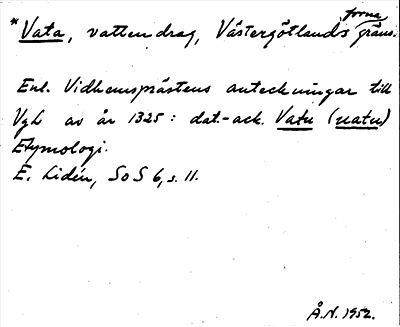 *Vata, vattendrag, Västergötlands forna gräns.
Enl. Vidhemsprästens anteckningar till
VgL av år 1325: dat.-ack. Vatu (uatu)
Etymologi.
E. Lidén, SoS 6, s. 11.
Å.N. 1952.